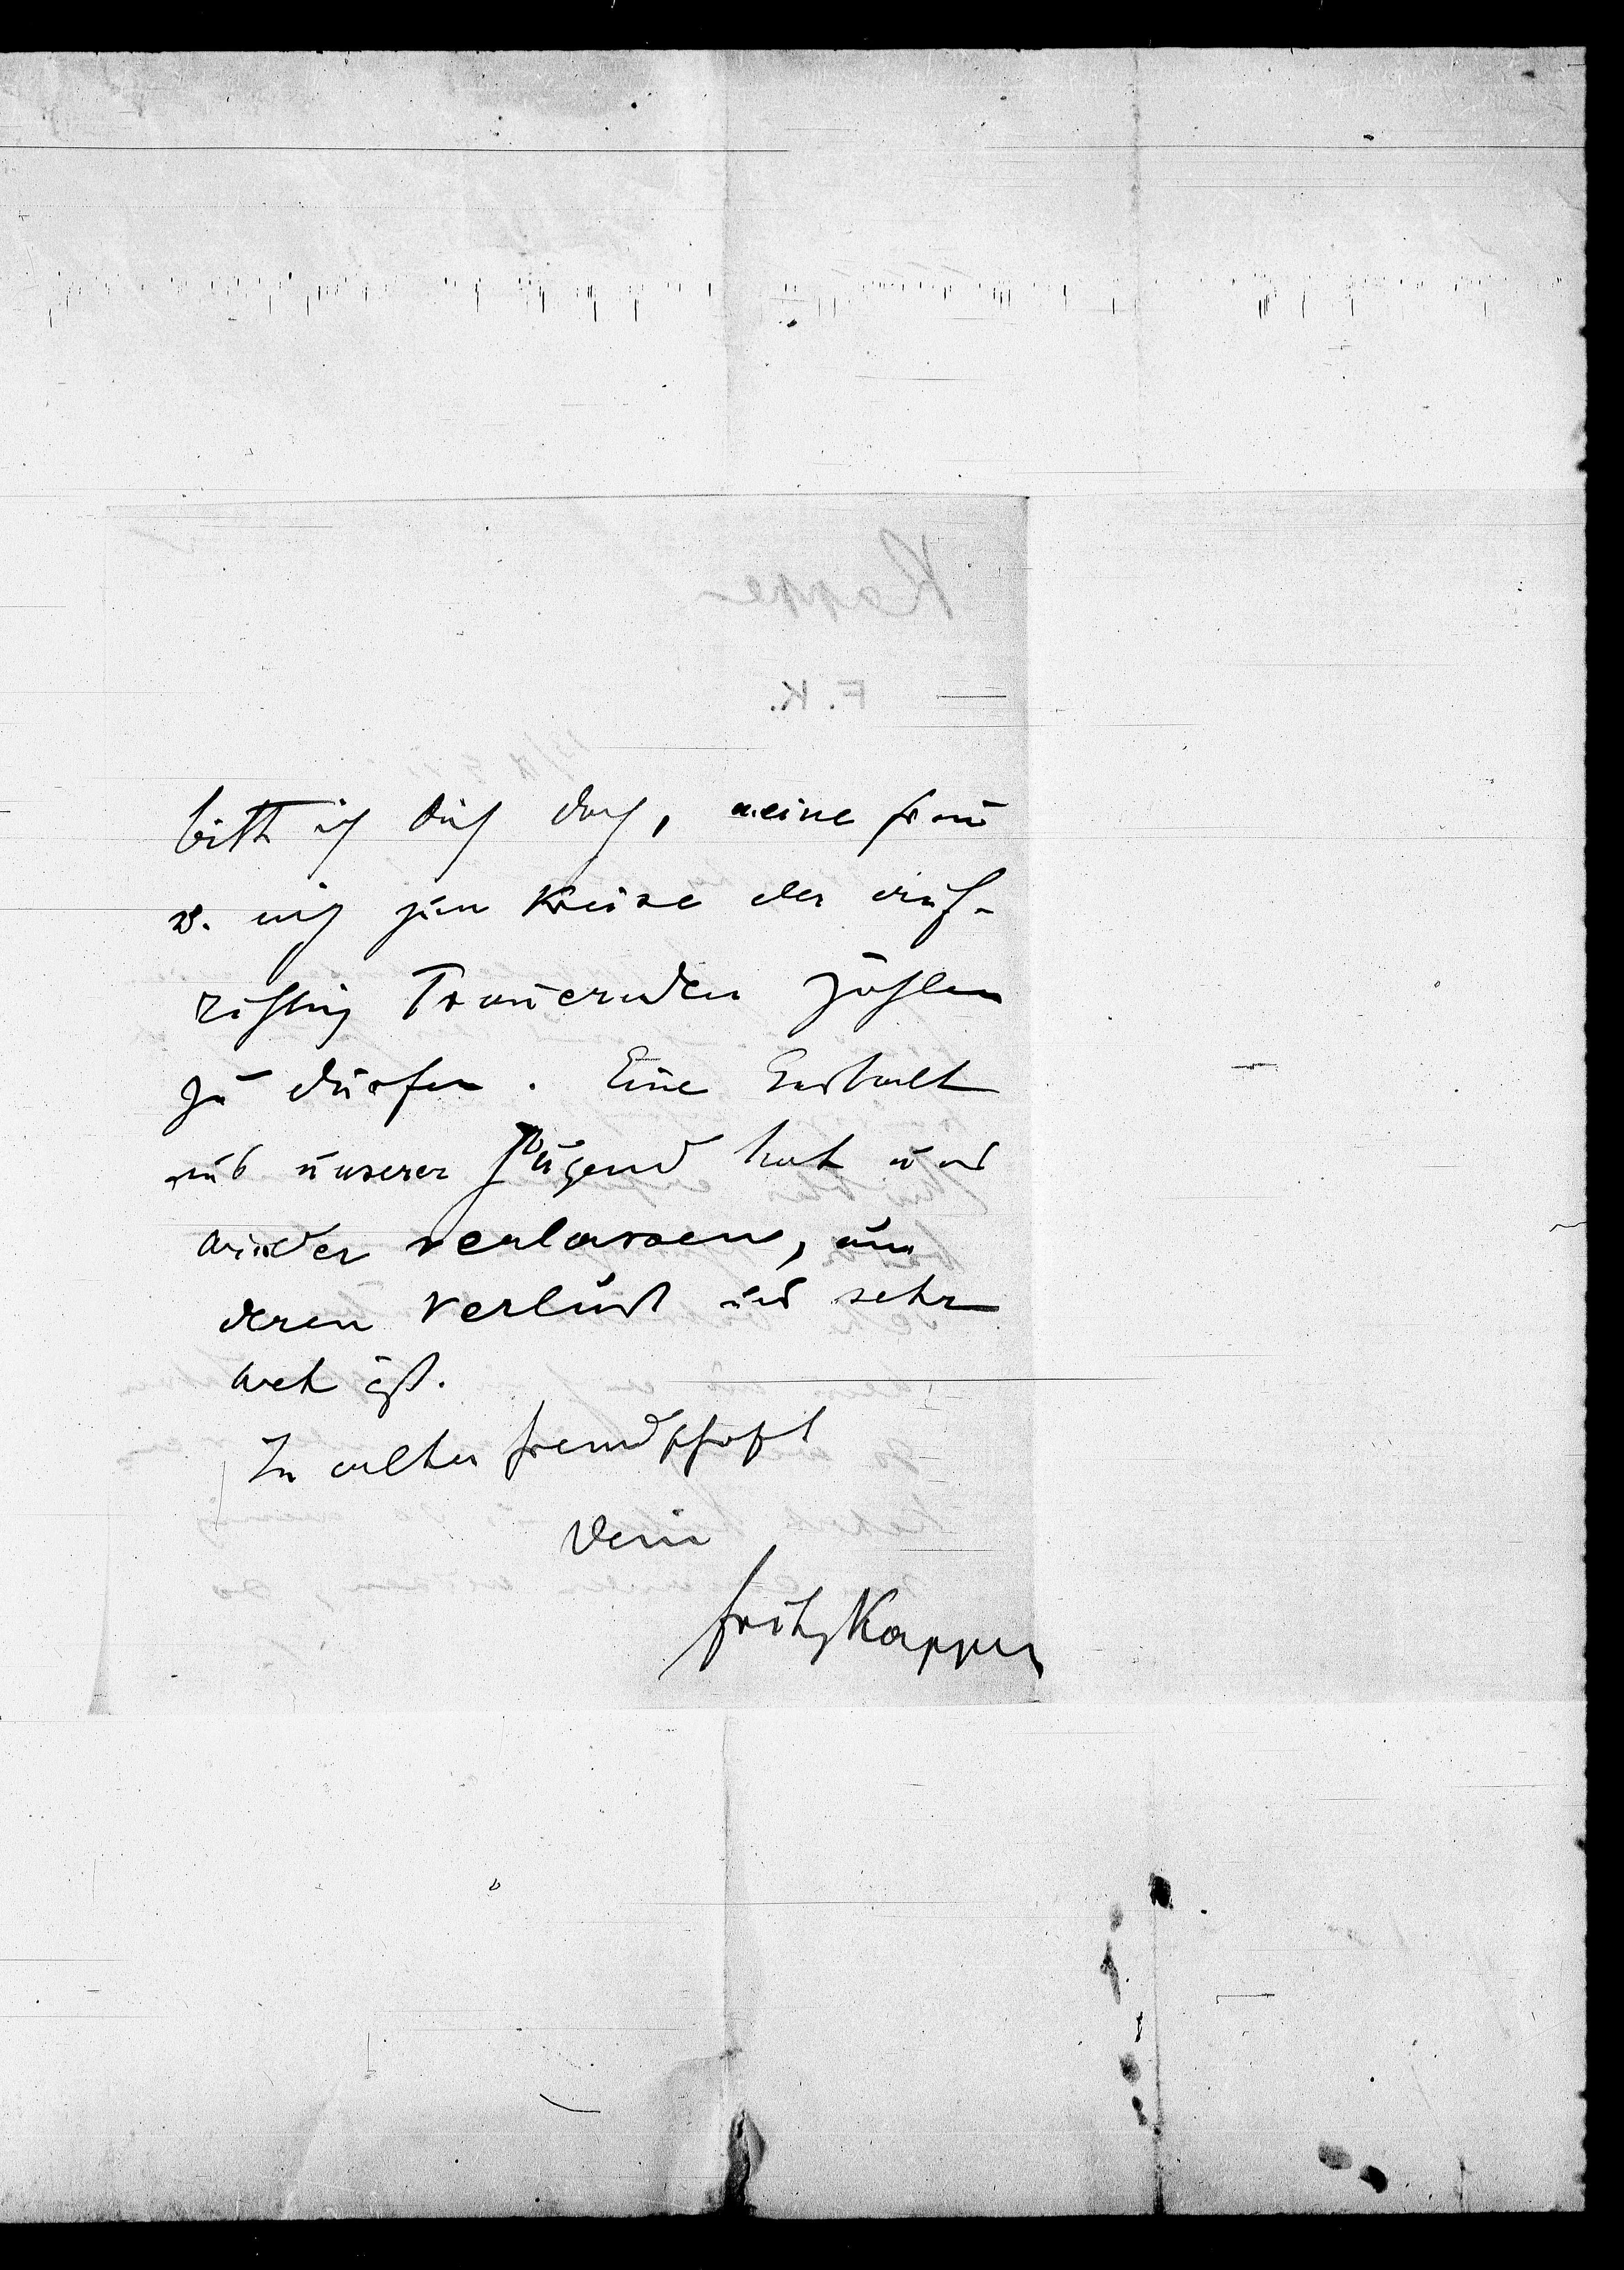 bitte ich Dich doch, meine Frau
u. mich zum Kreise der auf-
richtig Trauernden zählen
zu dürfen. Eine Gestalt
aus unserer Jugend hat uns
wieder verlassen, um
deren Verlust uns sehr
weh ist.
In alter Freundschaft
Dein
Fritz Kapper
Kapper
F. K.